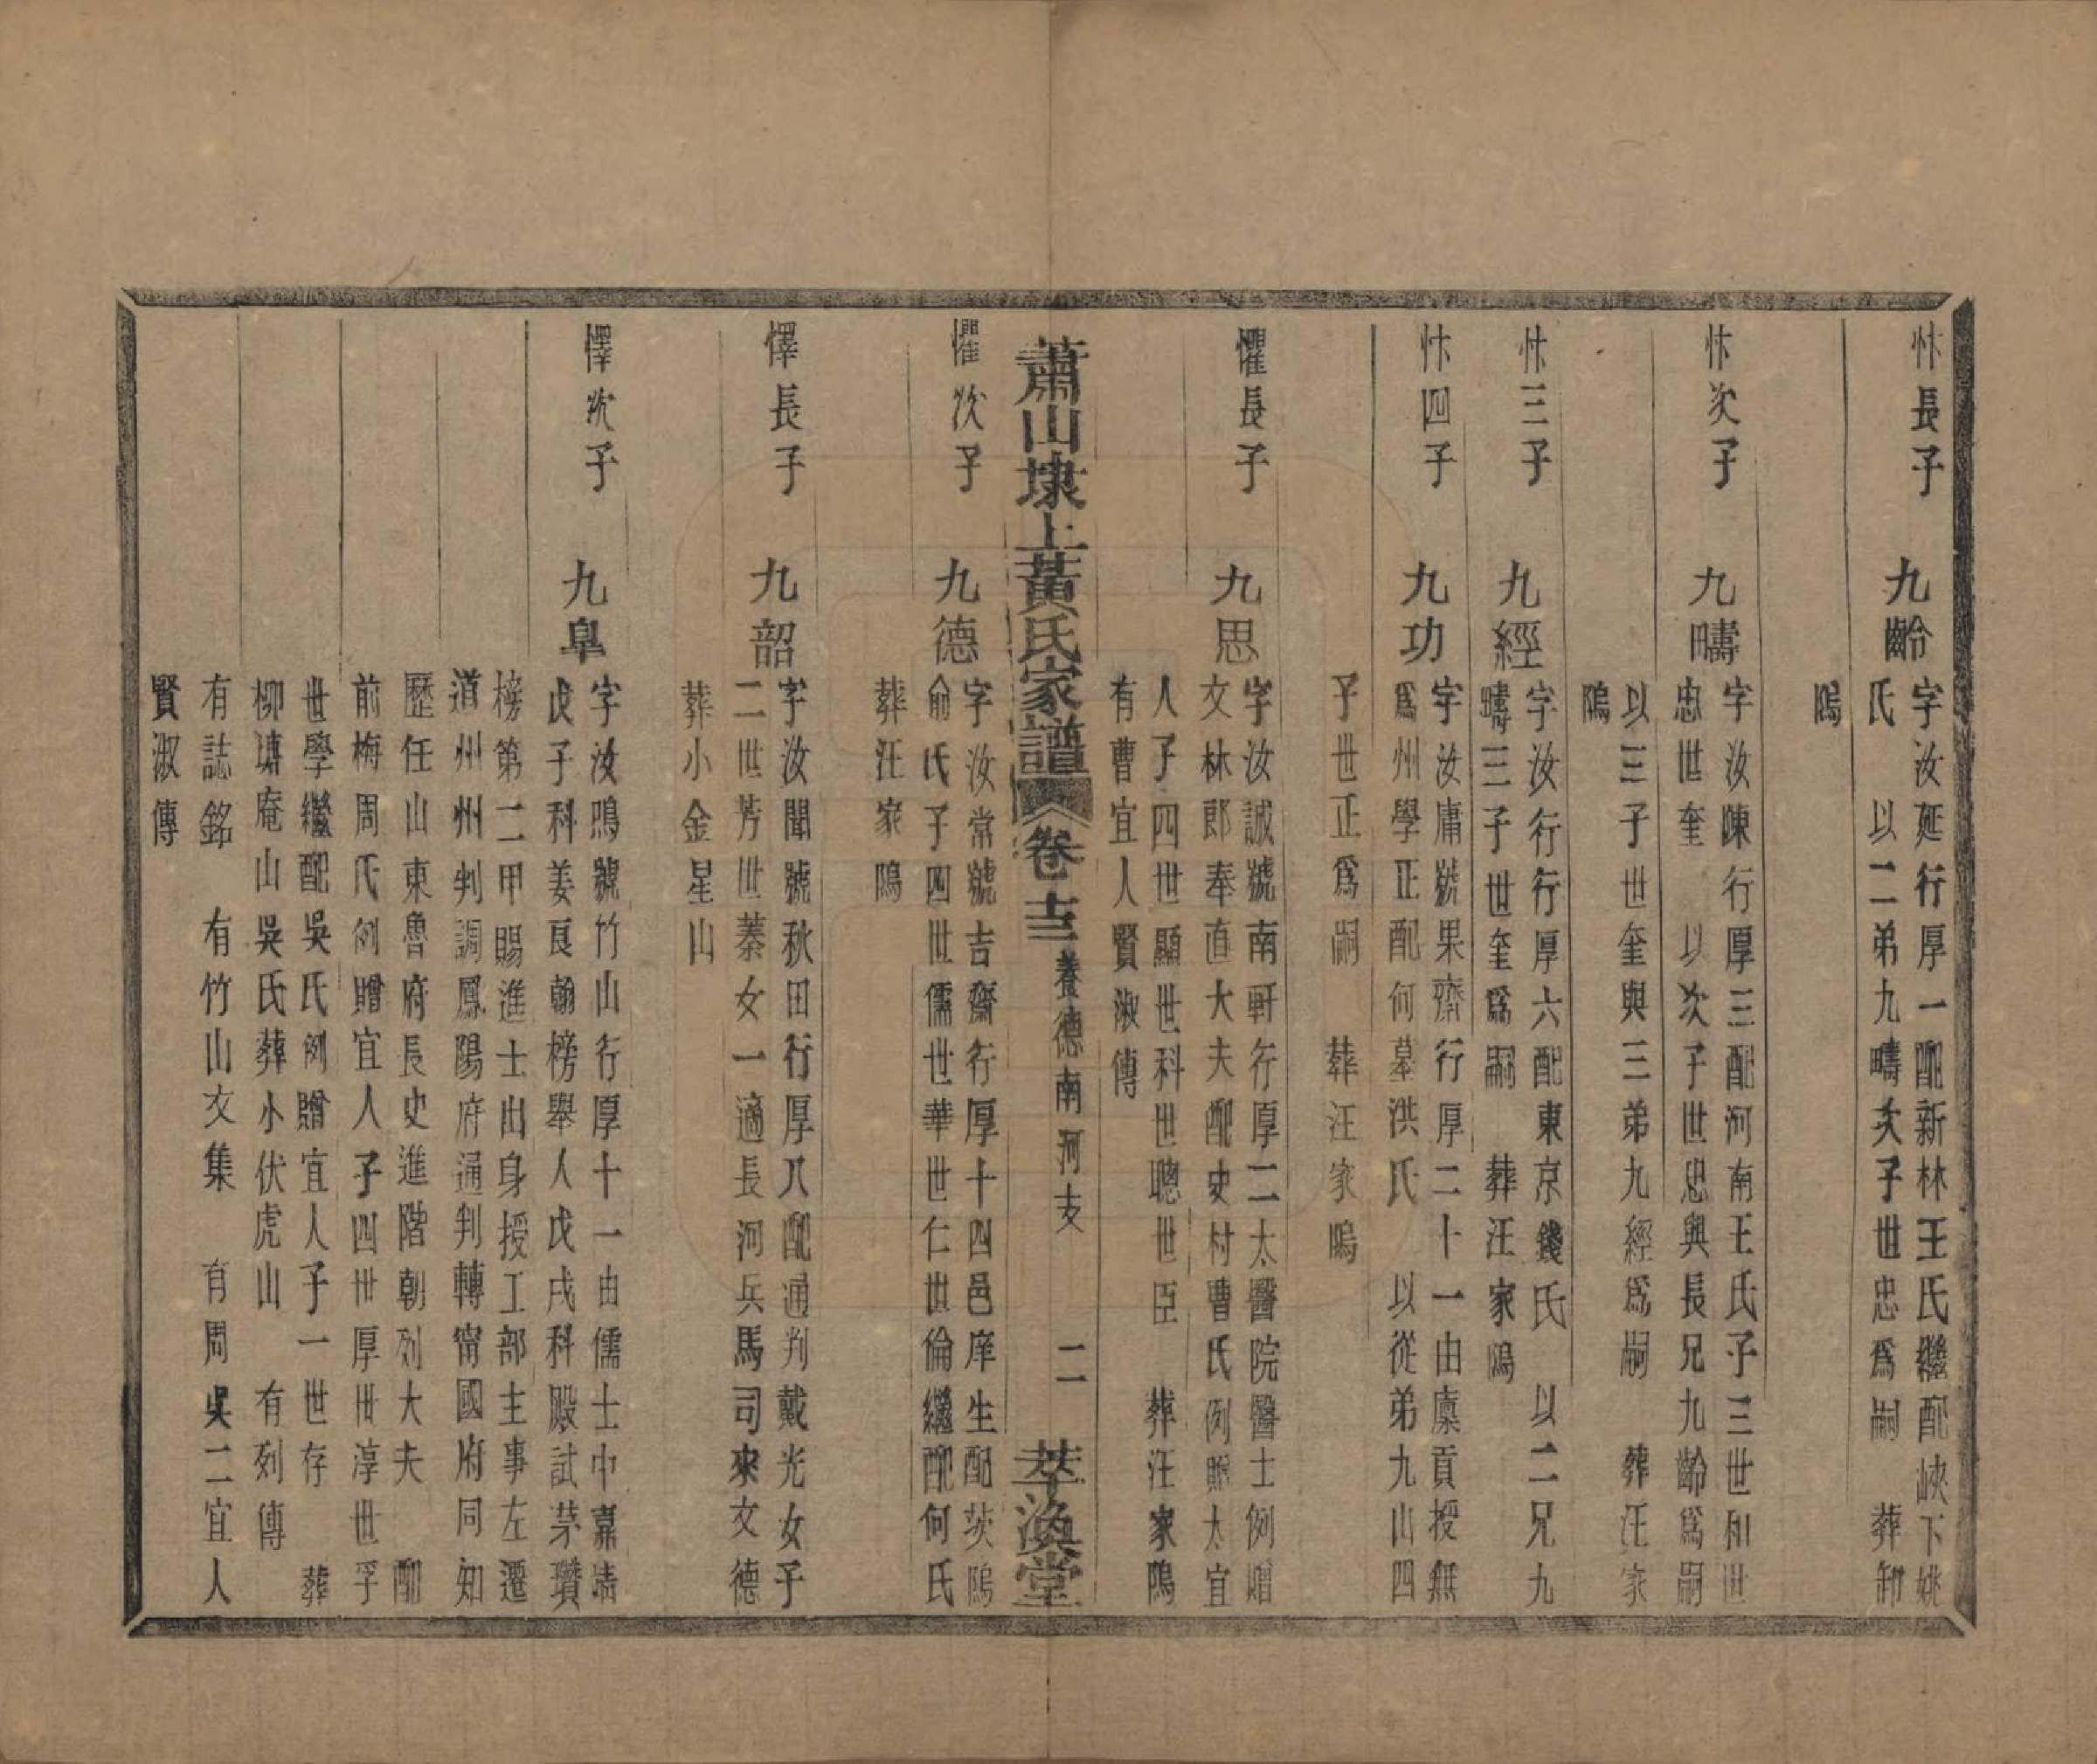 忭長子　九齡
字汝延行厚一配新林王氏繼配峽下姚
氏　以二弟九疇次子世忠爲嗣　葬卸
隖
忭次子　九疇
字汝陳行厚三配河南王氏子三世和世
忠世奎　以次子世忠與長兄九齡爲嗣
以三子世奎與三弟九經爲嗣　葬汪家
隖
忭三子　九經
字汝行行厚六配東京錢氏　以二兄九
疇三子世奎爲嗣　葬汪家隖
忭四子　九功
字汝庸號果齋行厚二十一由廪貢授無
爲州學正配何墓洪氏　以從弟九山四
子世正爲嗣　葬汪家隖
懼長子　九思
字汝誠號南軒行厚二太醫院醫士例贈
文林郎奉直大夫配史村曹氏例贈太宜
人子四世顯世科世聰世臣　葬汪家隖
有曹宜人賢淑傳
蕭山埭上黃氏家譜　卷十三　養德南河支　二　萃渙堂
懼次子　九德
字汝常號吉齋行厚十四邑庠生配茨隖
俞氏子四世儒世華世仁世倫繼配何氏
葬汪家隖
懌長子　九韶
字汝聞號秋田行厚八配通判戴光女子
二世芳世蓁女一適長河兵馬司來文德
葬小金星山
懌次子　九臯
字汝鳴號竹山行厚十一由儒士中嘉靖
戊子科姜良翰榜舉人戊戌科殿試茅瓚
榜第二甲賜進士出身授工部主事左遷
道州州判調鳳陽府通判轉甯國府同知
歷任山東魯府長史進階朝列大夫　配
前梅周氏例贈宜人子四世厚世淳世孚
世學繼配吳氏例贈宜人子一世存　葬
柳塘庵山吳氏葬小伏虎山　有列傳
有誌銘　有竹山文集　有周吳二宜人
賢淑傳